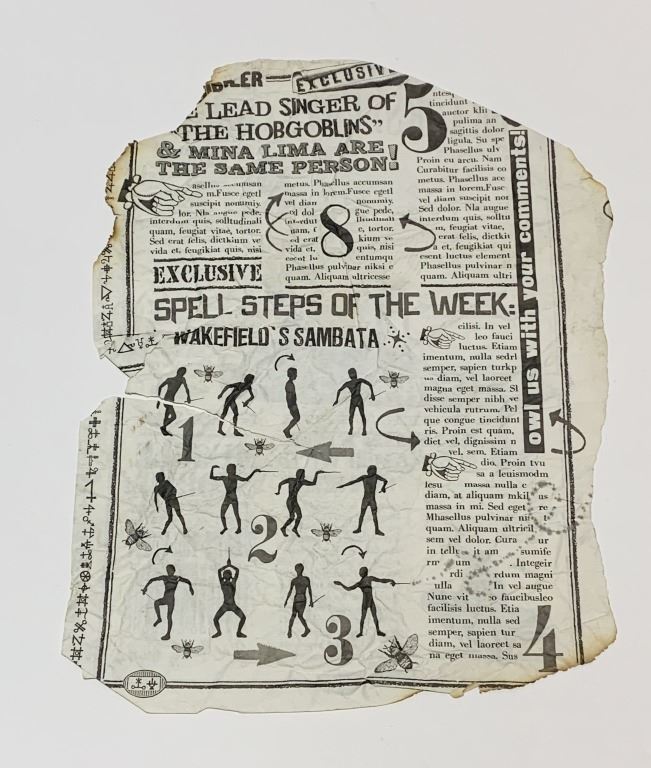 EXCLUSIV
LEAD SINGER OF
"THE HOBGOBLINS"
& MINA LIMA ARE
THE SAME PERSON!
m.Fusce egetl
suscipit nonumiy,
lor. Nla augue pede,
interdum quis, sollitudin
quam, feugiat vitae, tortor.
Sed erat felis, dictkium ve
vida et, feugikiat quis, nisi
metus. Phasellus accumsan
massa in lorem.Fusce egetl
vel diam nonumiy,
gue pede,
tortor.
kium
nisi
entumqu
Phasellus pulvinar niksi e
quam. Aliquam ultricesse
8
5
tincidunt
auctor
pulima an
sagittis dolor
ligula. Su spe
Phasellus ulv
Proin eu arcu. Nam
Curabitur facilisis co
metus. Phasellus ace
massa in lorem.Fusc
vel diam suscipit nor
Sed dolor. Nla augue
interdum quis, solltu
m, feugiat vitae,
erat felis, dictkit
et, feugikiat qui
esent luctus element
Phasellus pulvinar n
quam. Aliquam ultris
owl us with your comments!
EXCLUSIVE
SPELL STEPS OF THE WEEK:
WAKEFIELD'S SAMBATA
1
2
3
cilisi. In vel
leo fauci
luctus. Etiam
imentum, nulla sedrl
semper, sapien turkp
diam, vel laoreet
magna eget massa. Sl
disse semper nibh ve
vehicula rutrum. Pel
que congue tincidunt
ris. Proin est quam,
diet vel, dignissim n
vel, sem. Etiam
dio. Proin tvu
sa a leuismodm
massa nulla c
diam, at aliquam mkil us
massa in mi. Sed eget re
Mhasellus pulvinar
quam. Aliquam ultricil
sem vel dolor. Cura ur
in sumife
Integeir
rdum magni
ulla In vel augue
Nunc vit faucibusleo
facilisis luctus. Etia
imentum, nulla sed
semper, sapien tur
diam, vel laoreet sa
na eget massa. Sus
4